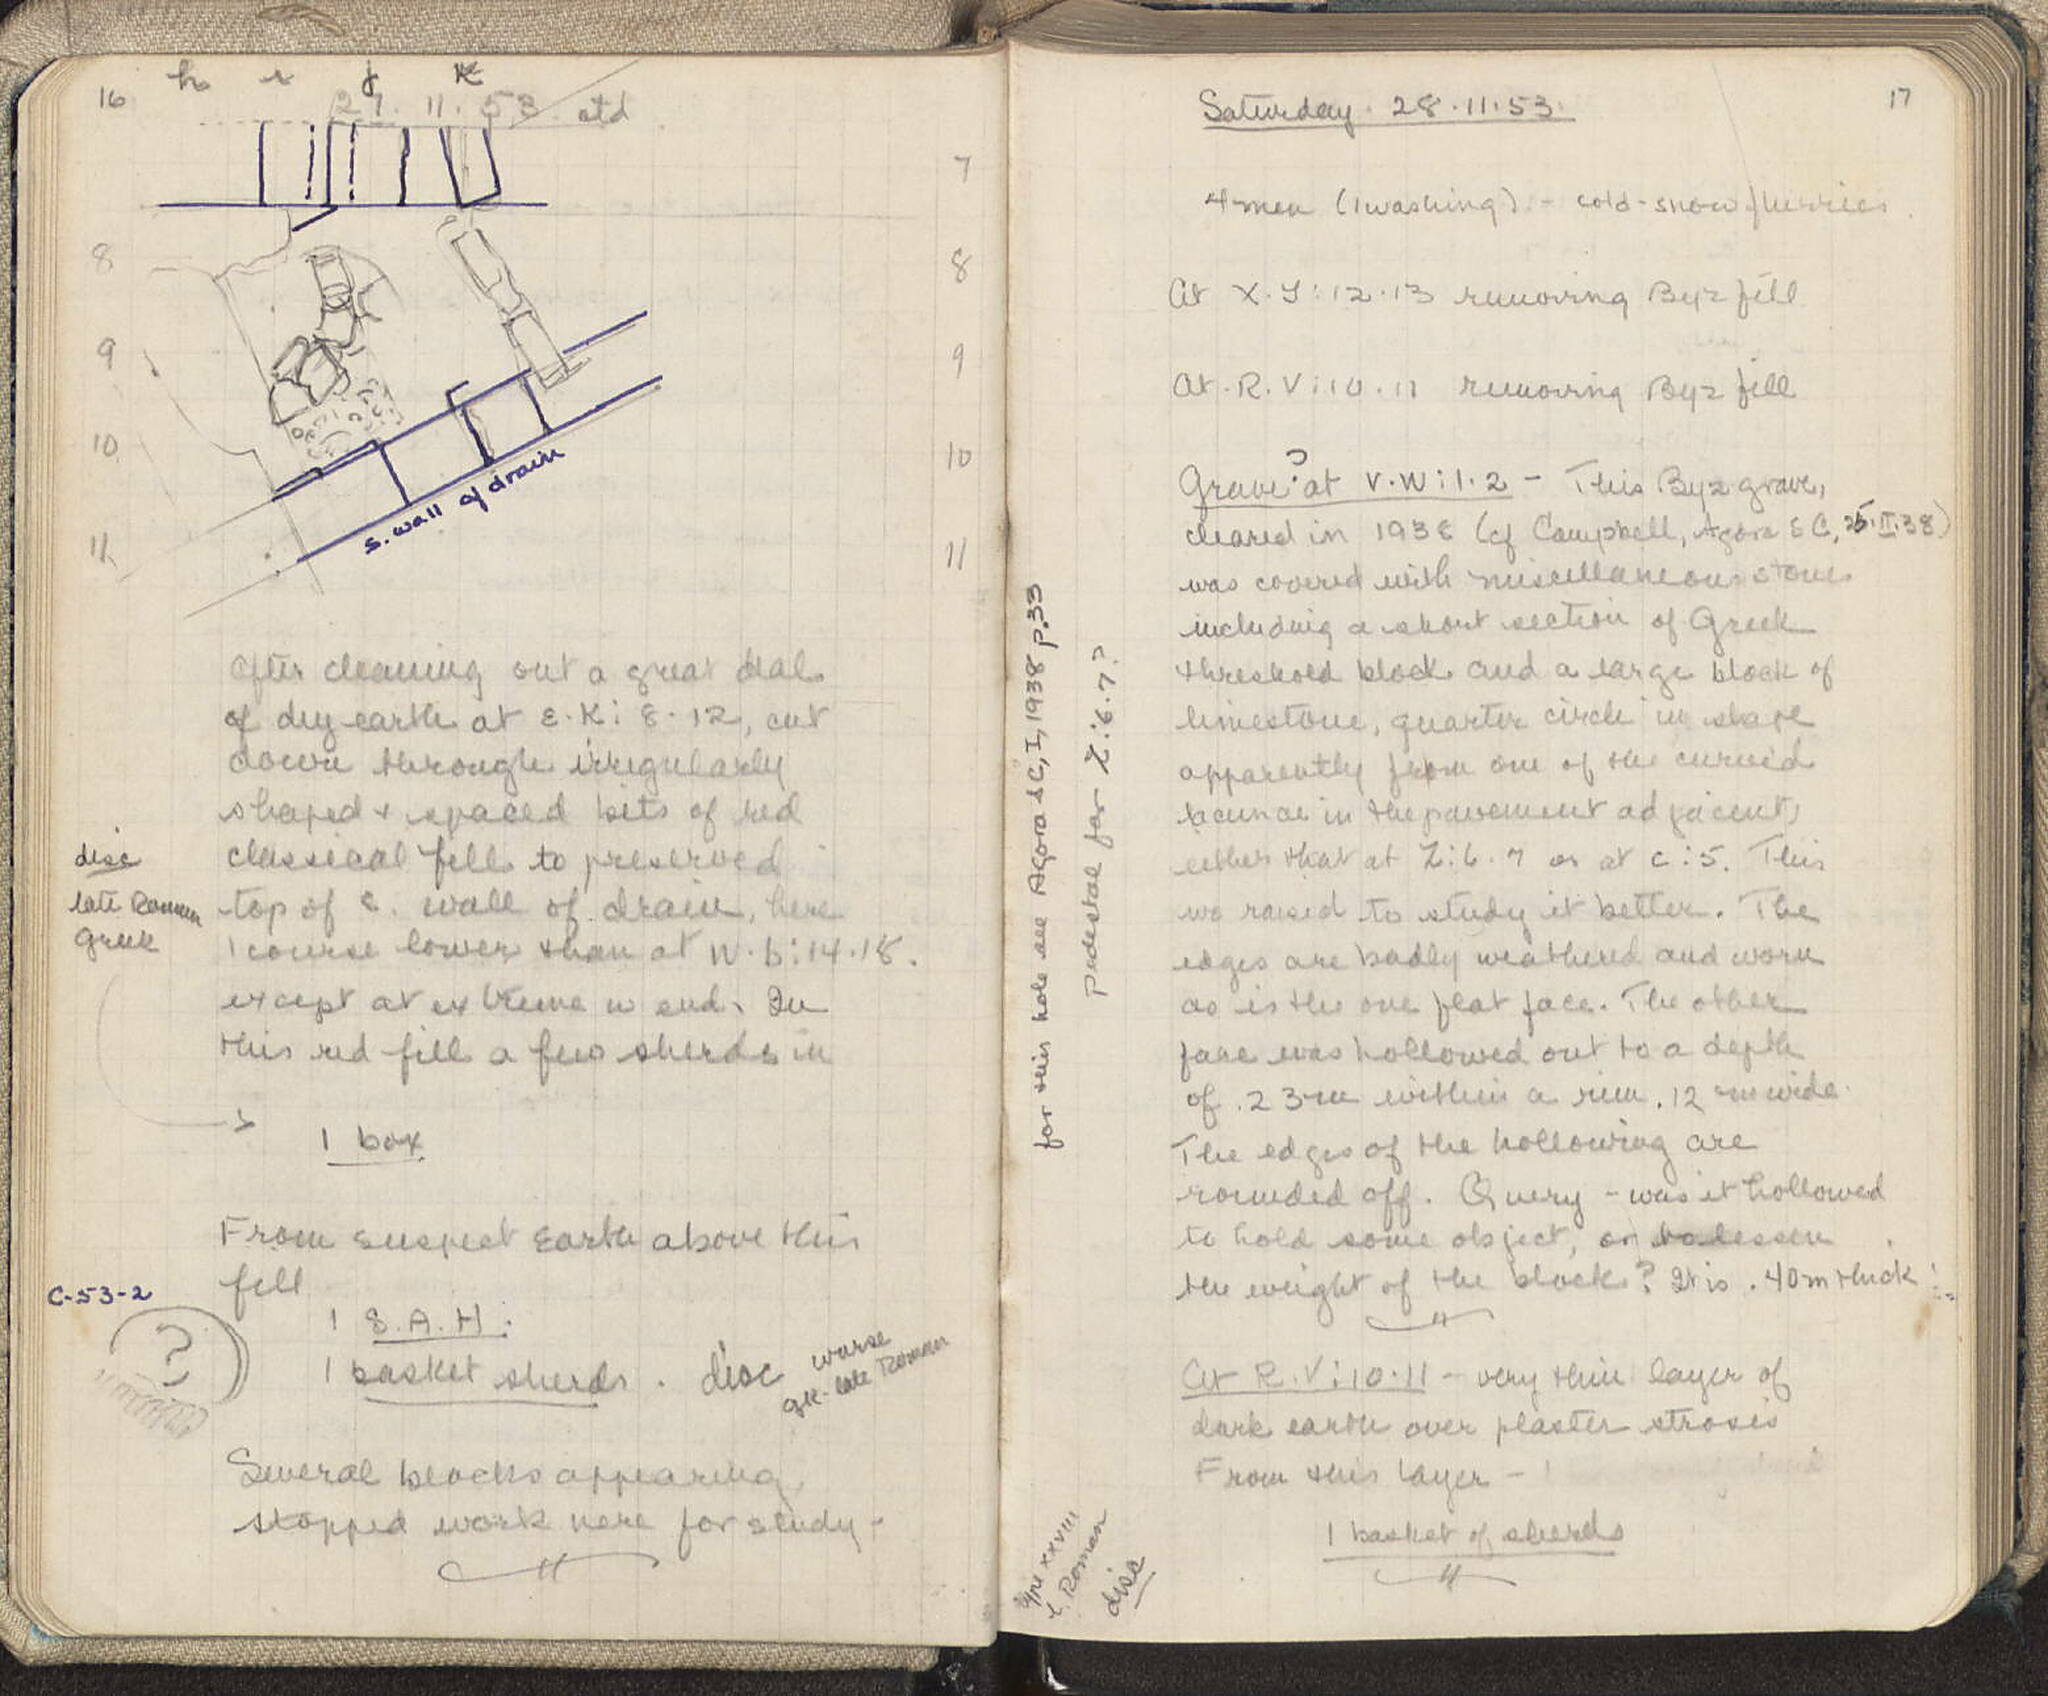 16
h i j K
27. 11. 53 ctd
7
8 8
9 9
10 10
11 11
S. wall of drain
After cleaning out a great deal
of dry earth at E-K: 8-12, cut
down through irregularly
shaped + spaced bits of red
classical fill to preserved
top of S. wall of drain, here
1 course lower than at N-b: 14-18.
except at extreme w end. In
this red fill a few sherds in
disc
late Roman
Greek
1 box
From suspect earth above this
fill
C-53-2
?
1 S.A.H.
1 basket sherds. disc worse
gk-late Roman
Several blocks appearing
stopped work here for study -
17
Saturday. 28.11.53.
4 men (1 washing) - cold - snow flurries.
At X-Y: 12-13 removing Byz fill
At R-V: 10-11 removing Byz fill
Grave? at V-W: 1-2 - This Byz grave,
cleared in 1938 (cf Campbell, Agora SC, 25.II.38)
was covered with miscellaneous stones
including a short section of Greek
threshold block and a large block of
limestone, quarter circle in shape
apparently from one of the curved
lacunae in the pavement adjacent,
either that at Z: 6-7 or at C: 5. This
we raised to study it better. The
edges are badly weathered and worn
as is the one flat face. The other
face was hollowed out to a depth
of .23m within a rim .12m wide.
The edges of the hollowing are
rounded off. Query - was it hollowed
to hold some object, or to lessen
the weight of the block? It is .40m thick!
for this hole see Agora SC, I, 1938 p.33
pedestal for Z: 6-7?
At R-V: 10-11 - very thin layer of
dark earth over plaster strosis
From this layer -
1 basket of sherds
type XXVIII
L. Roman
disc